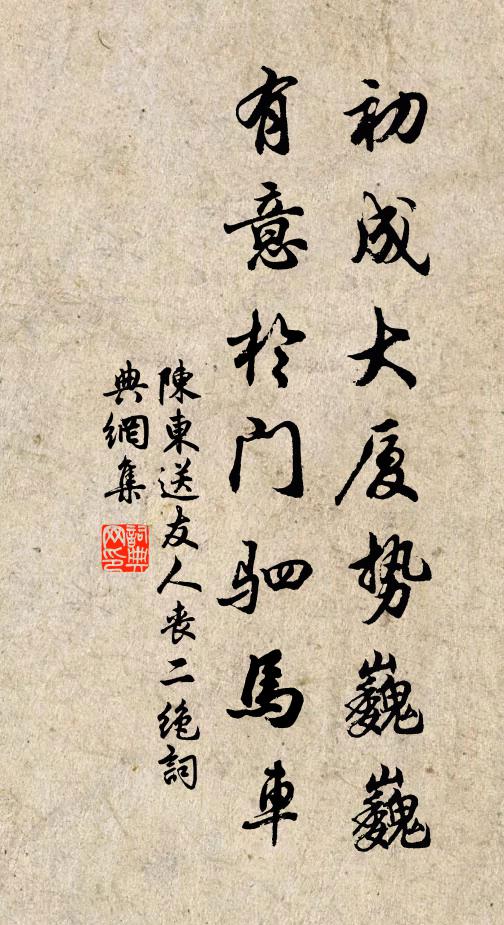 初成大厦势巍巍
有意於门驷馬車
陳東送友人丧二绝詞
典網集
詞典
网印